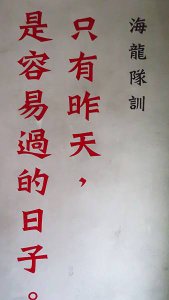 海龍隊訓
只有昨天，
是容易過的日子。